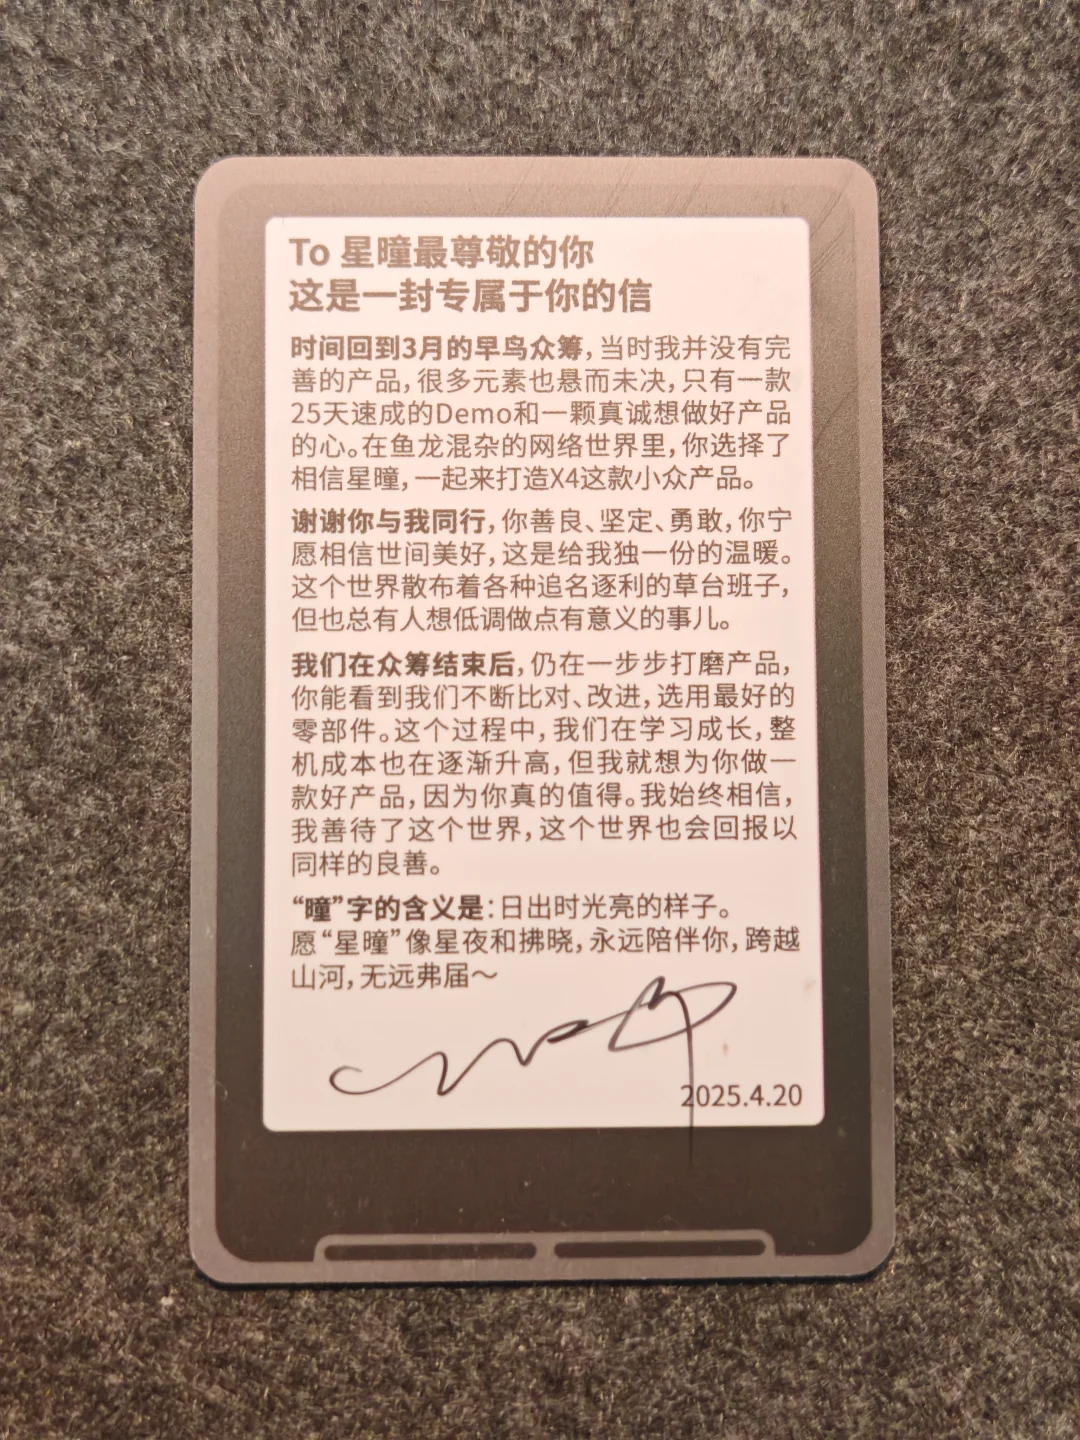 To 星曈最尊敬的你
这是一封专属于你的信
时间回到3月的早鸟众筹，当时我并没有完
善的产品，很多元素也悬而未决，只有一款
25天速成的Demo和一颗真诚想做好产品
的心。在鱼龙混杂的网络世界里，你选择了
相信星曈，一起来打造X4这款小众产品。
谢谢你与我同行，你善良、坚定、勇敢，你宁
愿相信世间美好，这是给我独一份的温暖。
这个世界散布着各种追名逐利的草台班子，
但也总有人想低调做点有意义的事儿。
我们在众筹结束后，仍在一步步打磨产品，
你能看到我们不断比对、改进，选用最好的
零部件。这个过程中，我们在学习成长，整
机成本也在逐渐升高，但我就想为你做一
款好产品，因为你真的值得。我始终相信，
我善待了这个世界，这个世界也会回报以
同样的良善。
“曈”字的含义是：日出时光亮的样子。
愿“星曈”像星夜和拂晓，永远陪伴你，跨越
山河，无远弗届～
2025.4.20